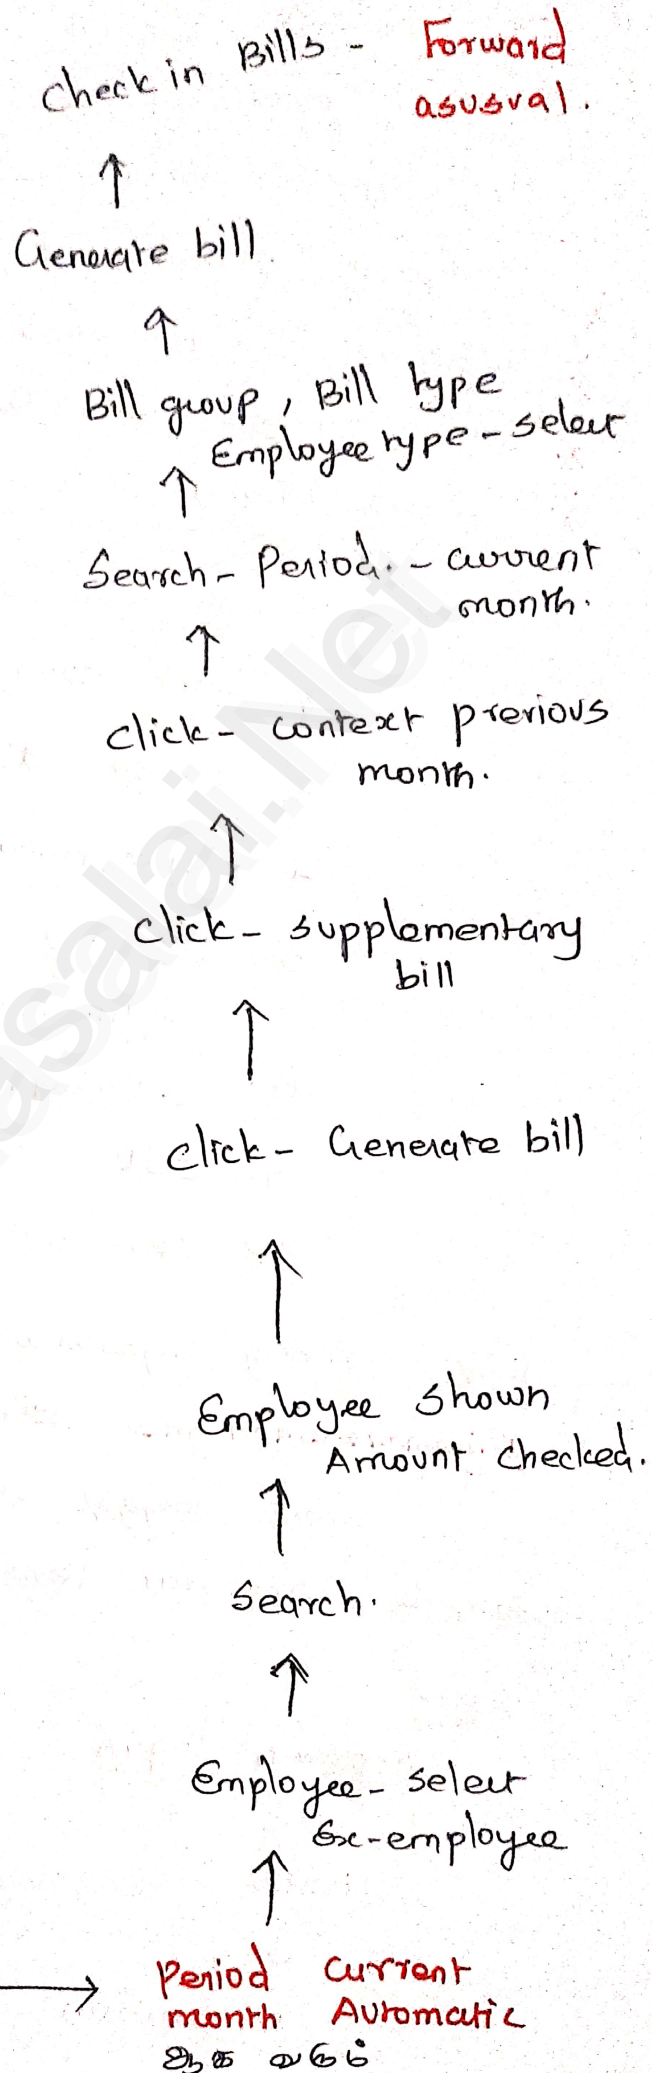 Check in Bills - Forward
asusval.
Generate bill.
Bill group, Bill type
Employee type - select
Search - Period. - current
month.
click - context previous
month.
click - supplementary
bill
click - Generate bill
Employee shown
Amount checked.
Search.
Employee - select
Ex-employee
Period current
month Automatic
ஆக வரும்
asalai.Net